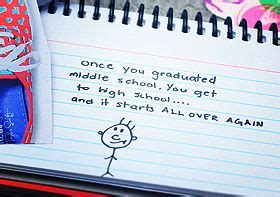 once you graduated
middle school, You get
to high school....
and it starts ALL OVER AGAIN